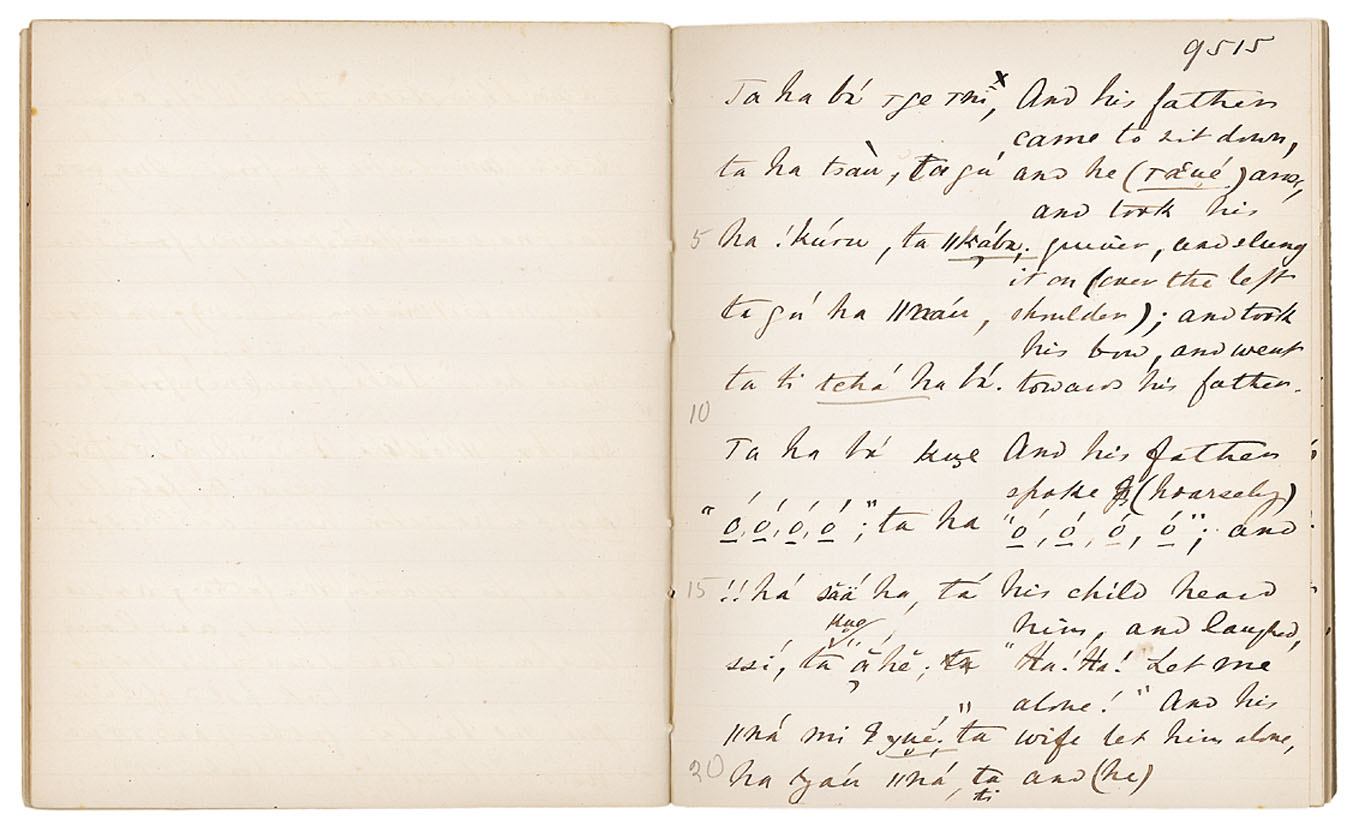 9515
Ta ha bá tge tni, x And his father
came to sit down,
ta ha tsàu, ta gú and he (răúé) arose,
and took his
5 ha !kúru, ta ǁkába; quiver, and slung
it on (over the left
ta gú ha ǁnáu, shoulder); and took
his bow, and went
ta ti tchá ha bá. towards his father.
10
Ta ha bá kue And his father
spoke (hoarsely)
"ó, ó, ó, ó"; ta ha "ó, ó, ó, ó"; and
15 !!há săá ha, tá his child heard
kue him, and laughed,
ssí, ta ă hĕ; ta "Ha! Ha! Let me
alone!" And his
ǁná mi, ta wife let him alone,
20 ha ǁná, ta and (he)
ti